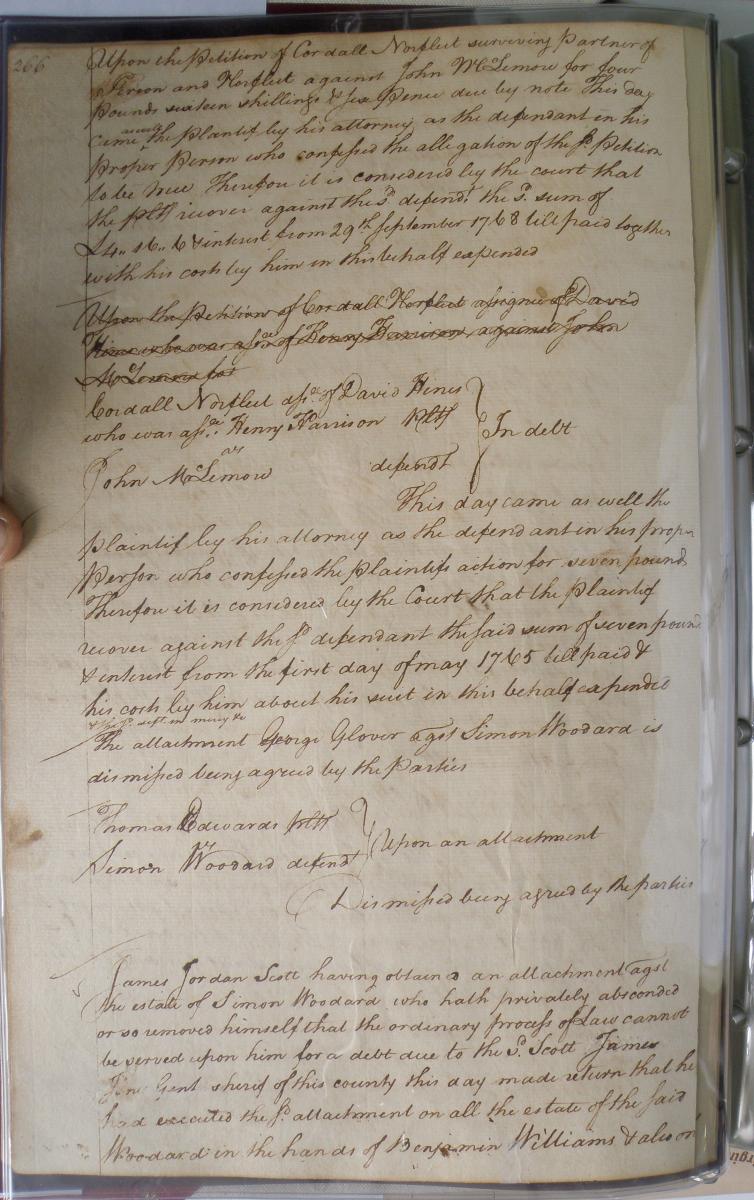 266
Upon the Petition of Cordall Norfleet surviving Partner of
Person and Norfleet against John McLemore for four
Pounds sixteen shillings & six Pence due by note This day
came as well the Plantif by his attorney as the defendant in his
Proper Person who confessed the allegation of the sd. Petition
to be true Therefore it is considered by the court that
the Pltf recover against the sd. defendt. the sd. sum of
£4.. 16.. 6 & interest from 29th September 1768 till paid together
with his costs by him in this behalf expended
Upon the Petition of Cordall Norfleet assignee of David
Hines who was assee. of Henry Harrison against John
McLemore for
Cordall Norfleet assee. of David Hines
who was assee. Henry Harrison Pltf
vs
John McLemore defendt
In debt
This day came as well the
Plaintif by his attorney as the defendant in his proper
Person who confessed the Plaintifs action for seven pounds
Therefore it is considered by the Court that the Plaintif
recover against the sd. defendant the said sum of seven pound
& interest from the first day of may 1765 till paid &
his costs by him about his suit in this behalf expended
& the sd. deft. in mercy &c
The attachment George Glover agst Simon Woodard is
dismissed being agreed by the Parties
Thomas Edwards Pltf
vs
Simon Woodard defendt
Upon an attachment
Dismissed being agreed by the parties
James Jordan Scott having obtain'd an attachment agst
the estate of Simon Woodard who hath privately absconded
or so removed himself that the ordinary process of Law cannot
be served upon him for a debt due to the sd. Scott James
Gent sherif of this county this day made return that he
had executed the sd. attachment on all the estate of the said
Woodard in the hands of Benjamin Williams & also on